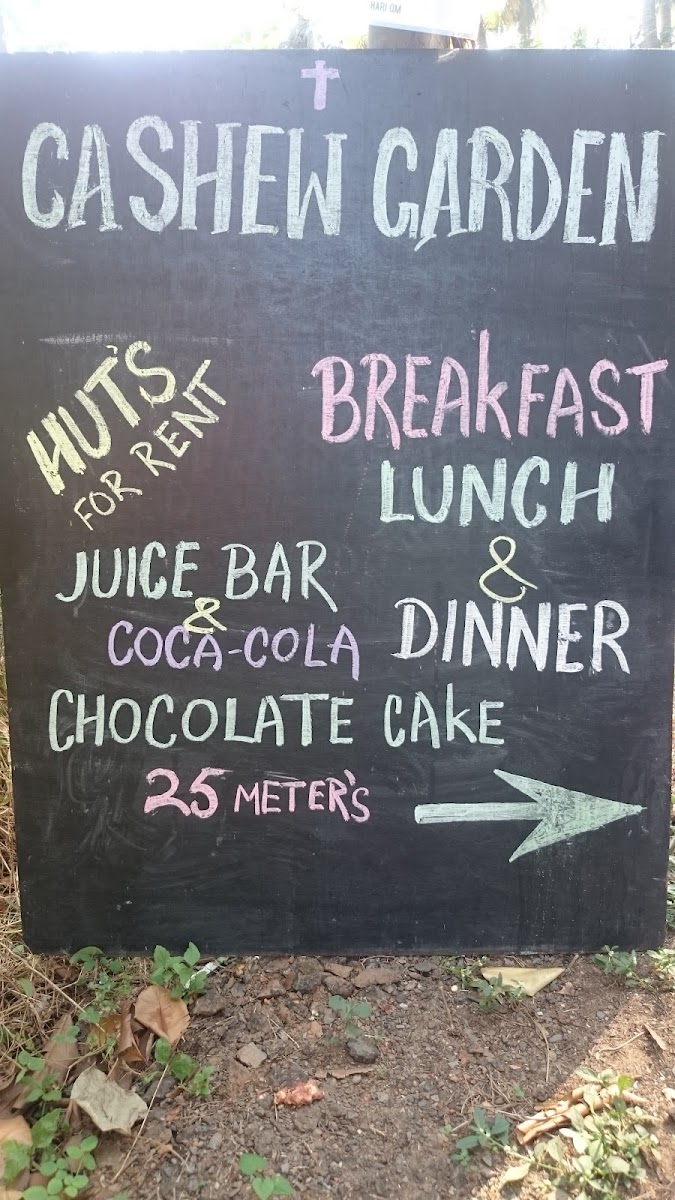 HARI OM
CASHEW GARDEN
HUT'S
FOR RENT
BREAKFAST
LUNCH
&
DINNER
JUICE BAR
&
COCA-COLA
CHOCOLATE CAKE
25 METER'S